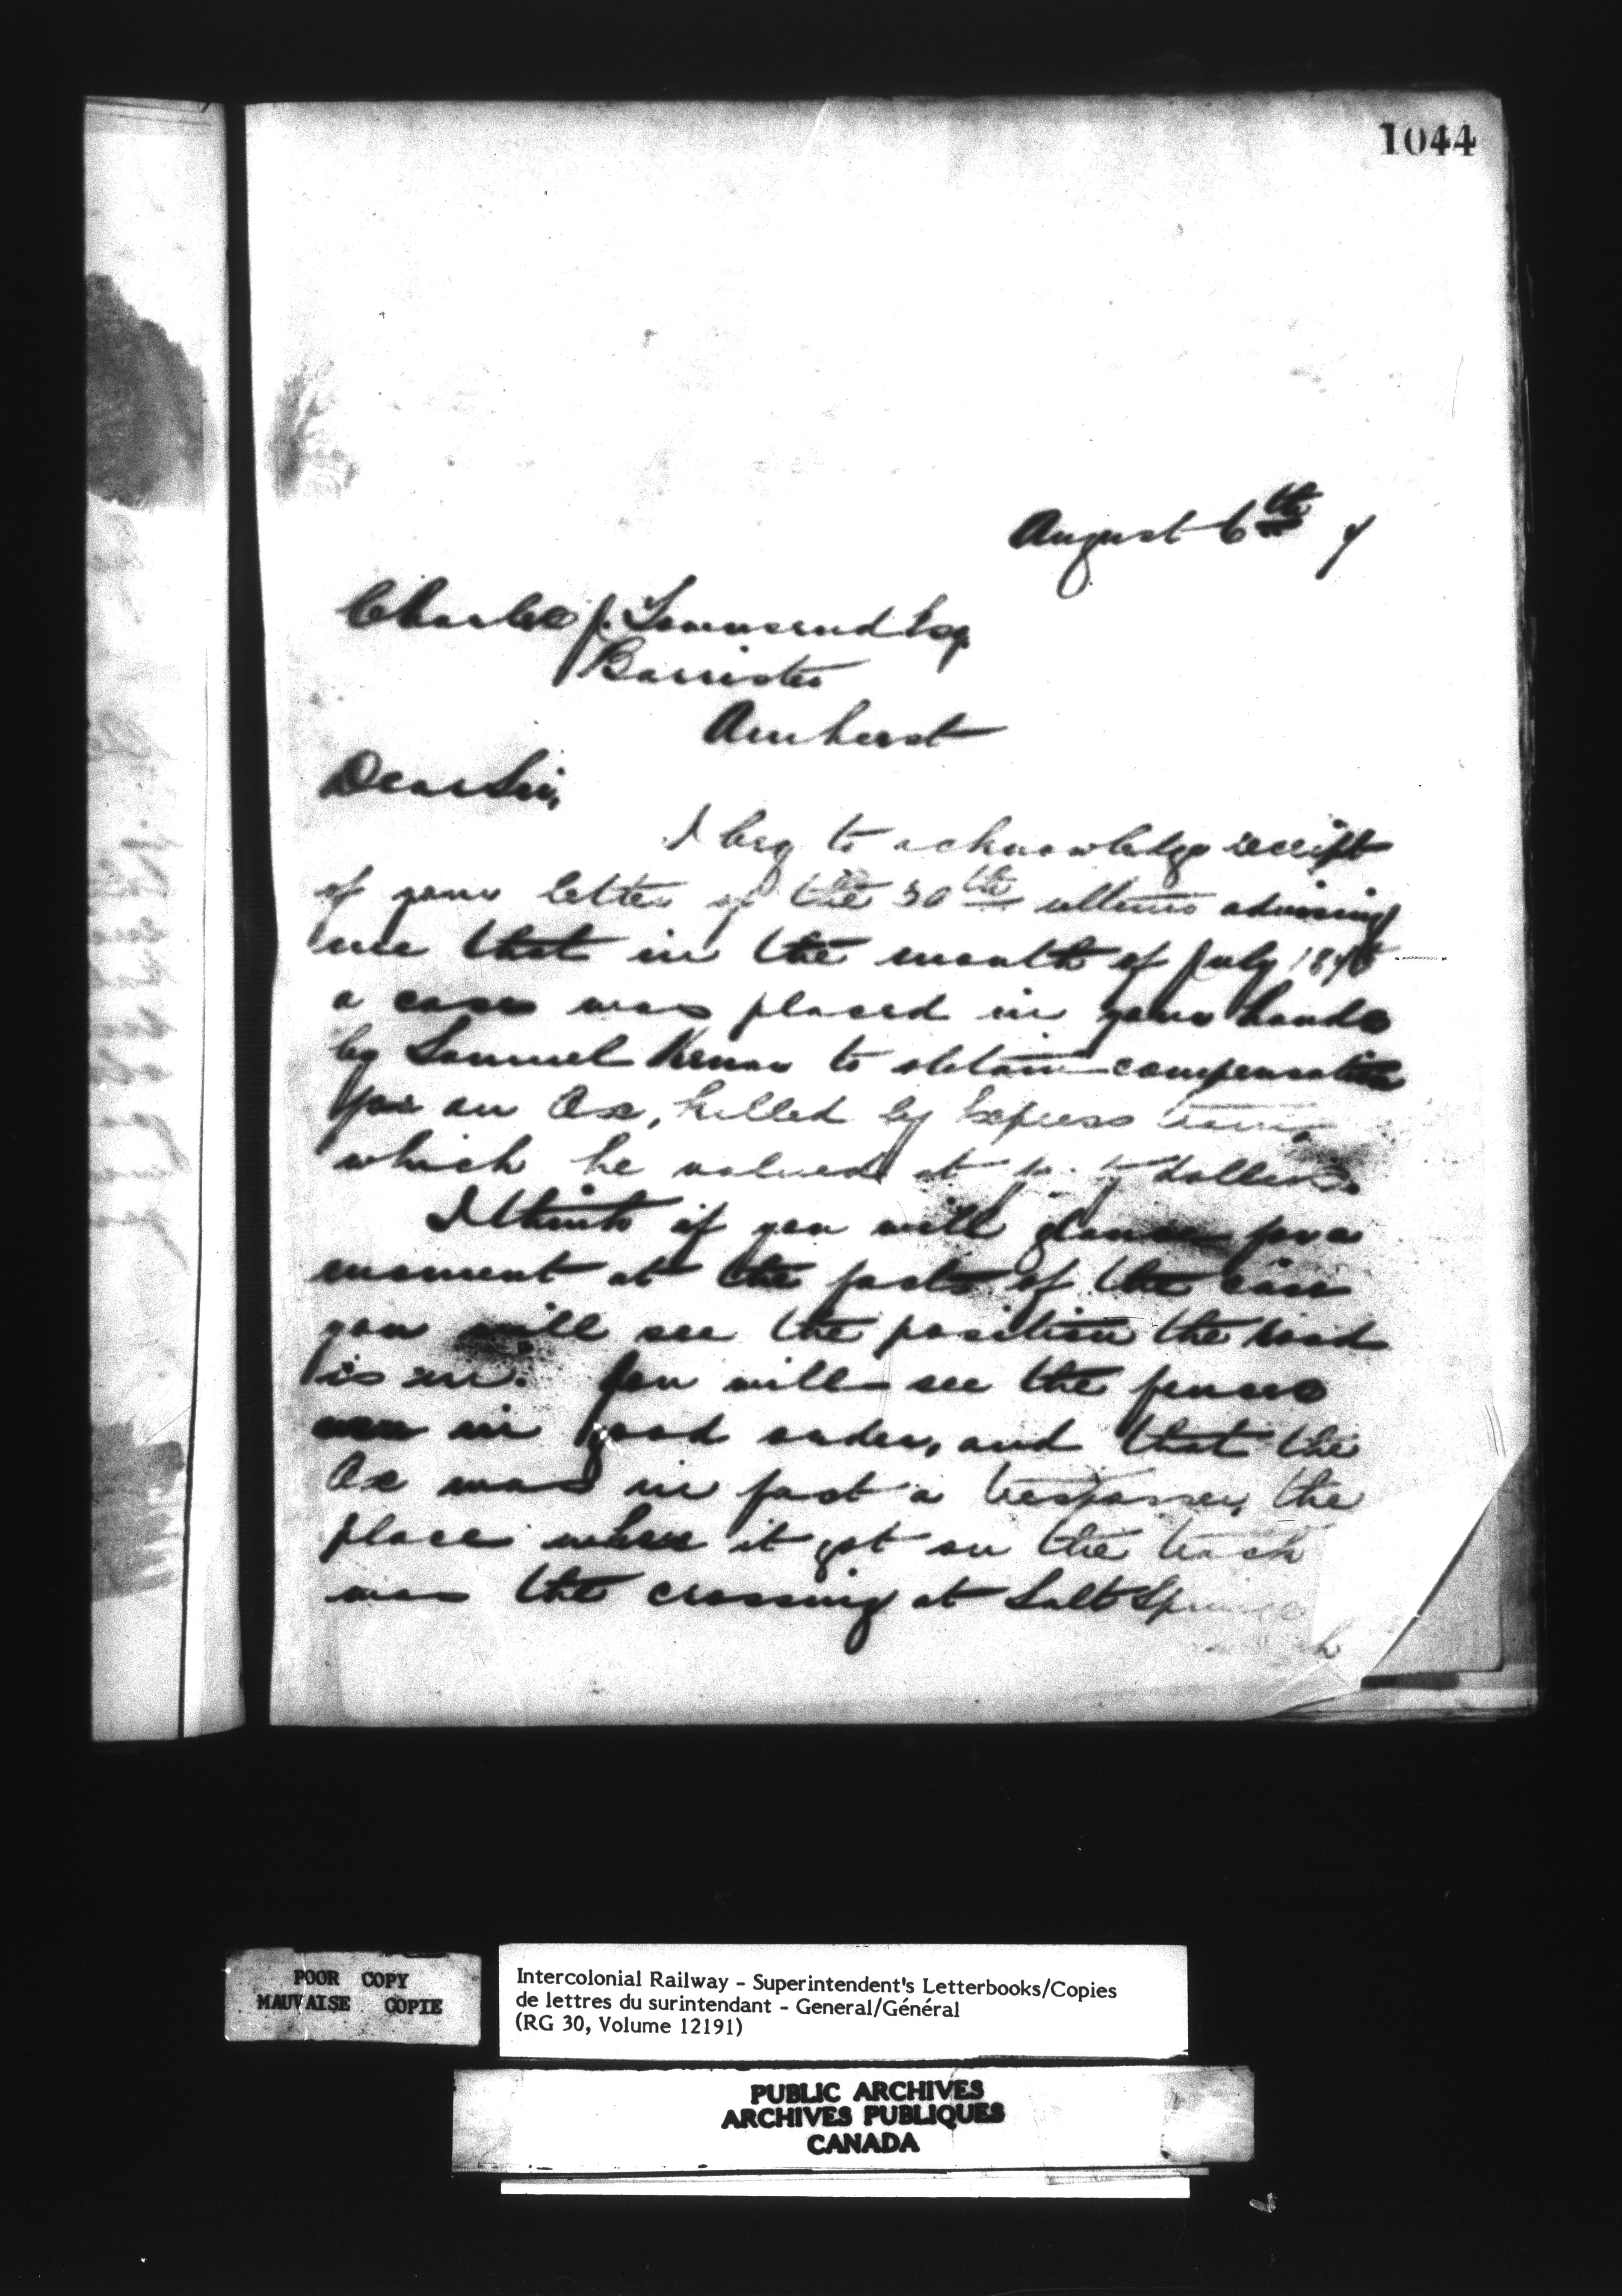 1044
August 6th 7
Charles J. Townsend Esq.
Barrister
Amherst
Dear Sir,
I beg to acknowledge receipt
of your letter of the 30th ultimo advising
me that in the month of July
a case was placed in your hands
by Samuel to obtain compensation
for an Ox, killed by Express train,
which he valued at dollars.
I think if you will glance for a
moment at the facts of the case
you will see the position the road
is in. You will see the fences
were in good order, and that the
Ox was in fact a trespasser, the
place where it got on the track
was the crossing at Salt Springs
POOR COPY
MAUVAISE COPIE
Intercolonial Railway - Superintendent's Letterbooks/Copies
de lettres du surintendant - General/Général
(RG 30, Volume 12191)
PUBLIC ARCHIVES
ARCHIVES PUBLIQUES
CANADA